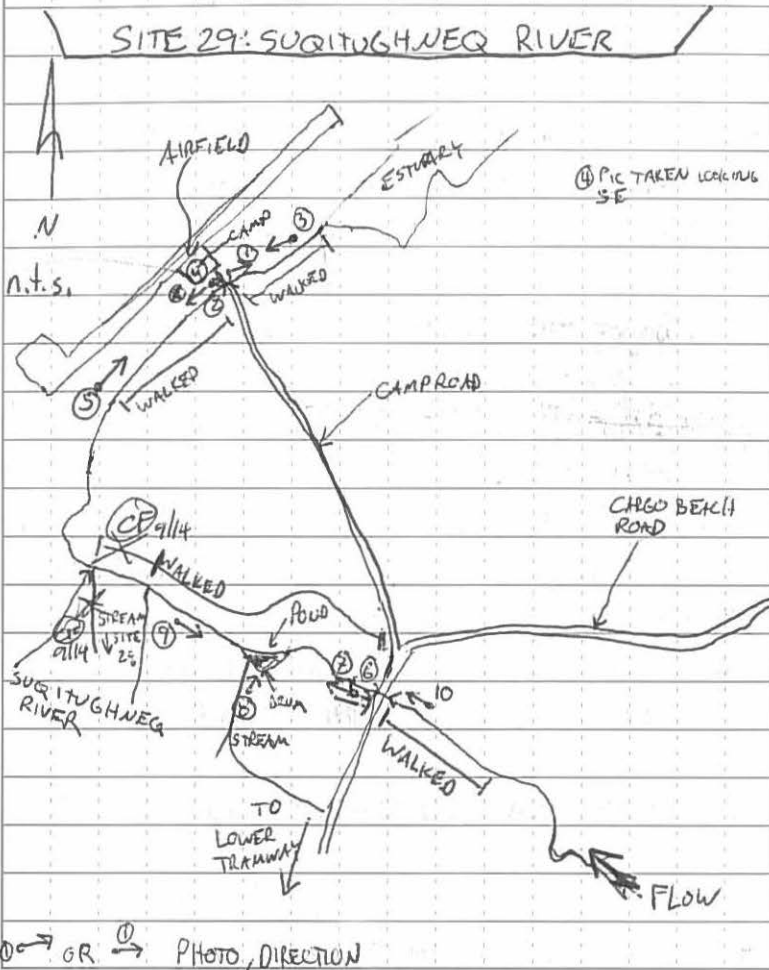 SITE 29: SUQITUGHNEQ RIVER
AIRFIELD
ESTUARY
④ PIC TAKEN LOOKING
SE
N
n.t.s.
CAMP
③
①
④
②
WALKED
WALKED
⑤
CAMP ROAD
CARGO BEACH
ROAD
CF 9/14
WALKED
POND
STREAM
SITE
28
9/14
⑨
SUQITUGHNEQ
RIVER
⑦ ⑥
10
⑧
DRUM
STREAM
WALKED
TO
LOWER
TRAMWAY
FLOW
① OR ① PHOTO, DIRECTION